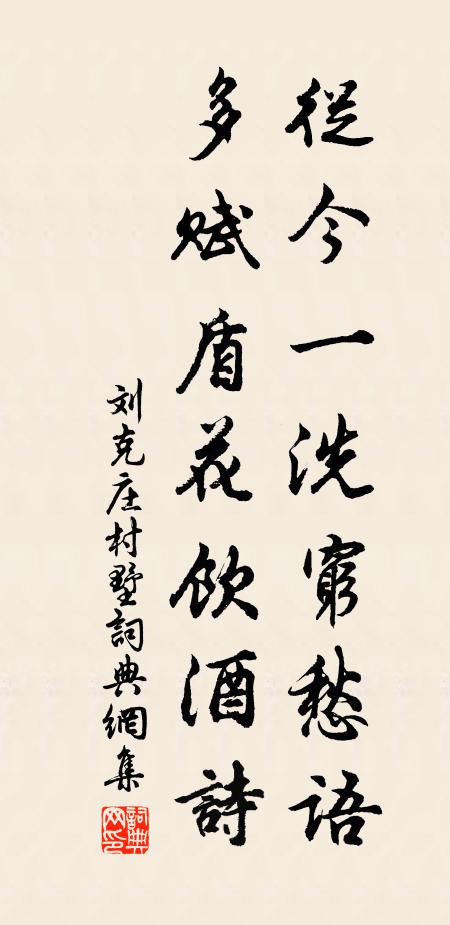 從今一洗窮愁語
多賦盾花飲酒詩
刘克庄村墅詞典網集
詞典网印